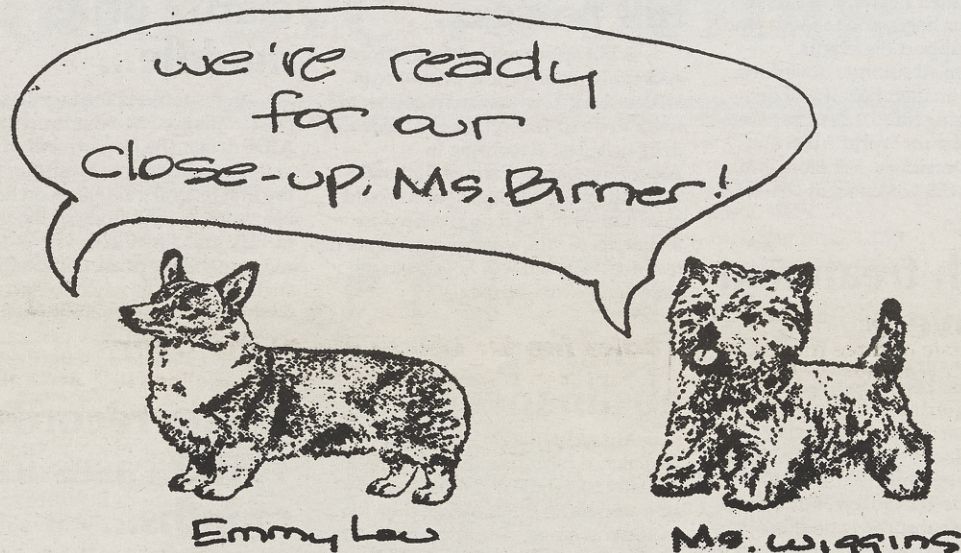 we're ready
for our
close-up, Ms. Birner!
Emmy Lou
Ms. Wiggins